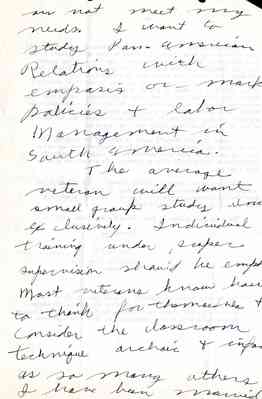 not meet my
needs. I want to
study Pan-American
Relations with
empasis on mark
policies & labor
Management in
South America.
The average
veteran will want
small group study
exclusively. Individual
training under
supervision should be emp
Most veterans know how
to think for themselves &
Consider the classroom
technique archaic &
as so many others
I have been married